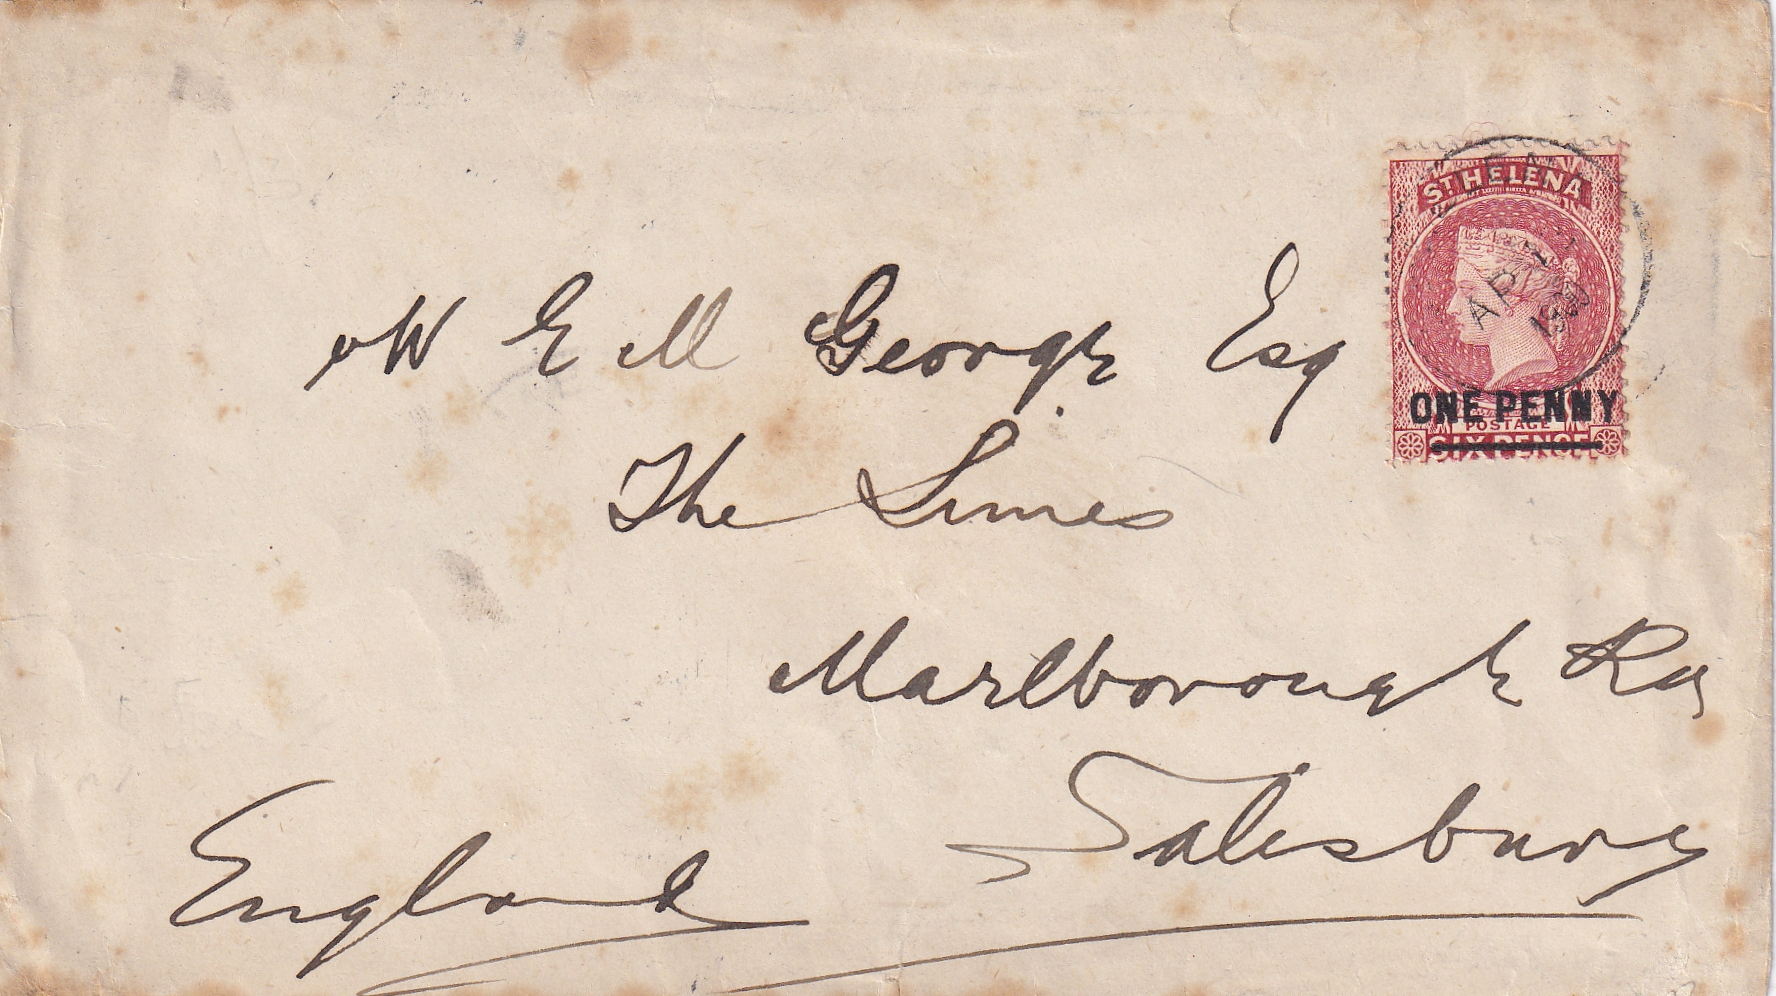 ST HELENA
AP
ONE PENNY
POSTAGE
SIX PENCE
W E M George Esq
The Limes
Marlborough Rd
Salisbury
England